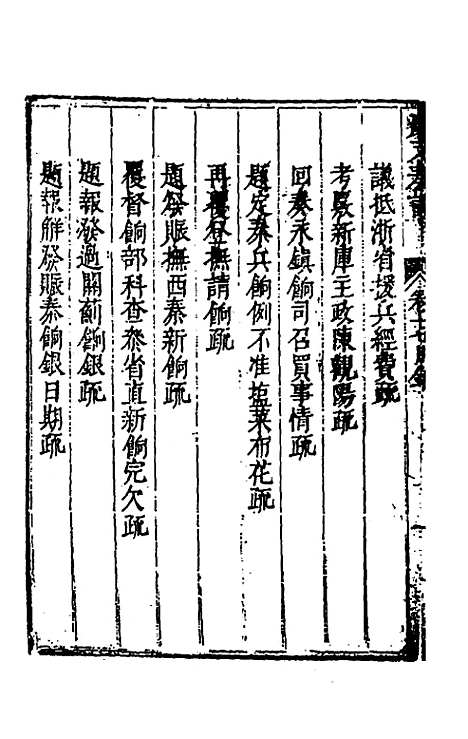 議抵浙省援兵經費疏
考覈新庫主政陳觀陽疏
回奏永鎮餉司召買事情疏
題定秦兵餉例不准塩菜布花疏
再覆登撫請餉疏
題發賑撫西秦新餉疏
覆督餉部科查叅省直新餉完欠疏
題報發過關薊餉銀疏
題報觧發賑秦餉銀日期疏